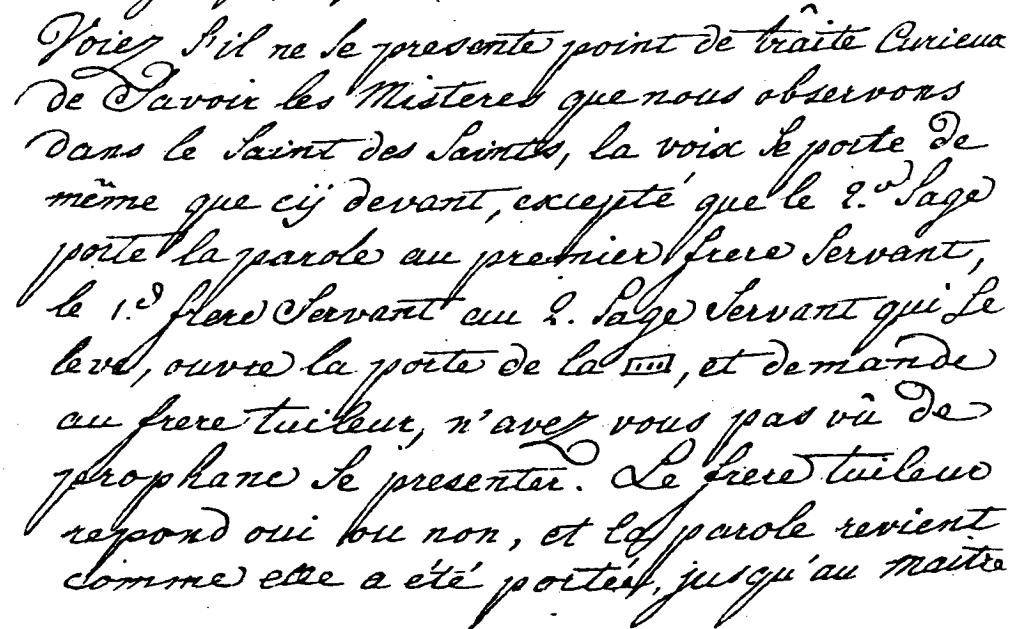 Voiez s'il ne se presente point de traîte Curieux
de Savoir les Misteres que nous observons
dans le Saint des Saints, la voix se porte de
même que cÿ devant, excepté que le 2.d Sage
porte la parole au premier frere Servant,
le 1.d frere Servant au 2. Sage Servant qui se
leve, ouvre la porte de la, et demande
au frere tuileur, n'avez vous pas vû de
prophane se presenter. Le frere tuileur
repond oui ou non, et la parole revient
comme elle a été portée, jusqu'au maitre